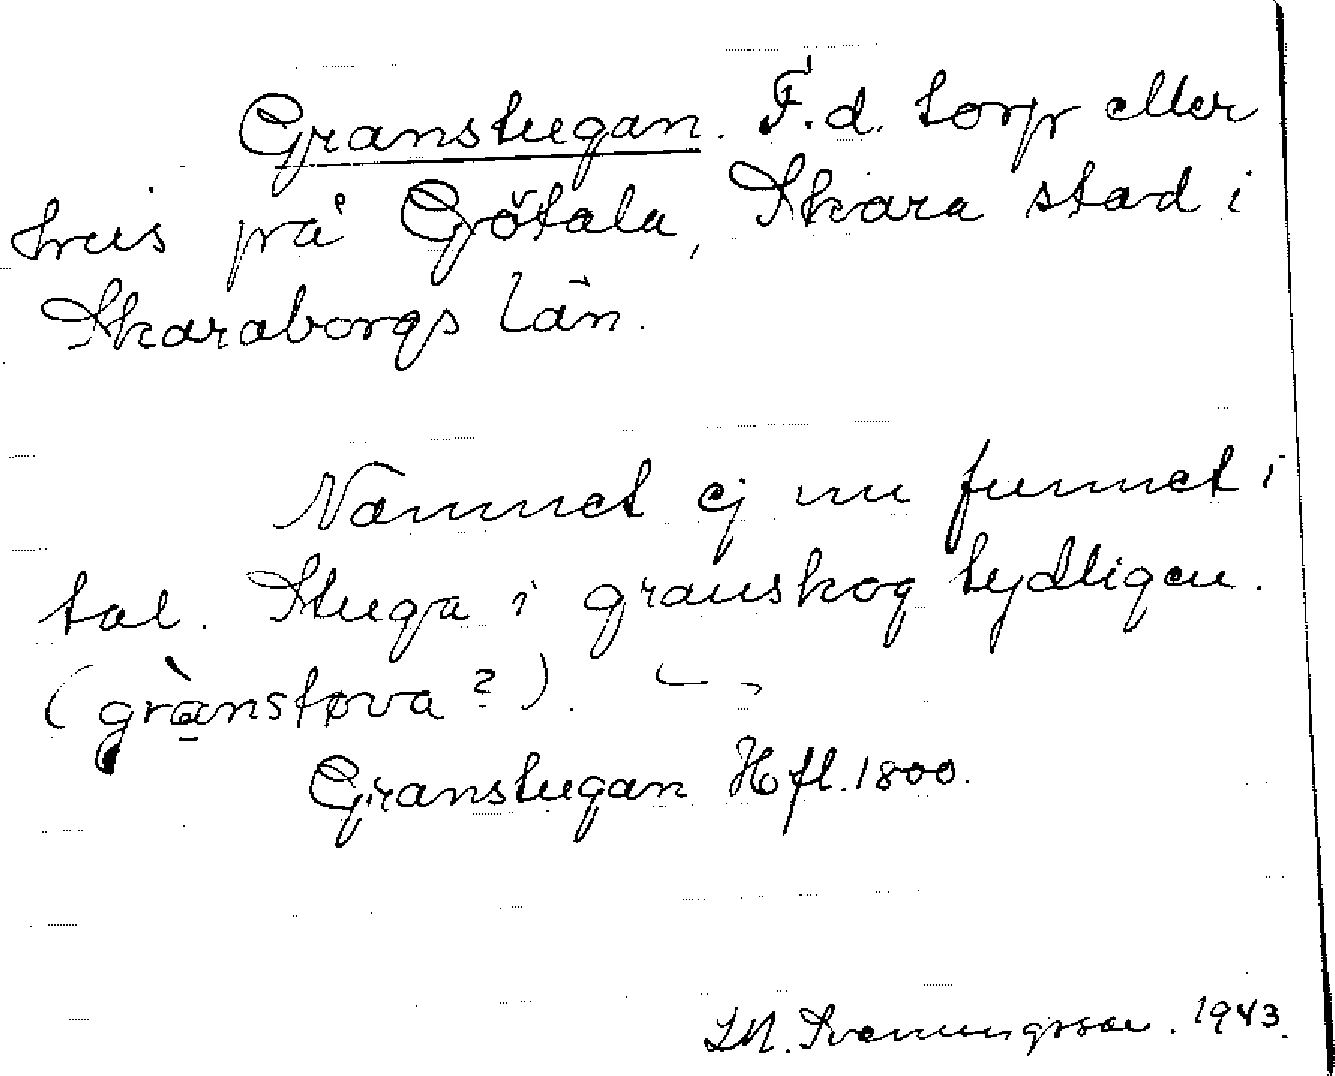 Granstugan. F.d. torp eller
hus på Götala, Skara stad i
Skaraborgs län.
Namnet ej nu funnet i
tal. Stuga i granskog tydligen.
(grànstova?).
Granstugan Hfl. 1800.
Svenungsson. 1943.